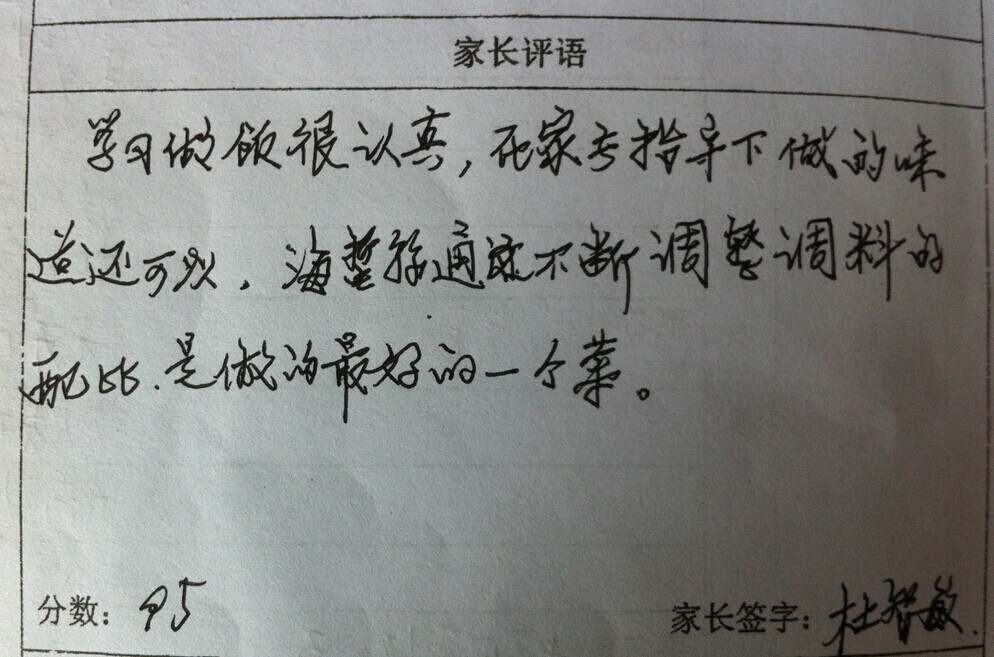 家长评语
学习做饭很认真,在家长指导下做的味
道还可以,海蜇丝通过不断调整调料的
配比.是做的最好的一个菜。
分数: 95
家长签字: 杜智敏